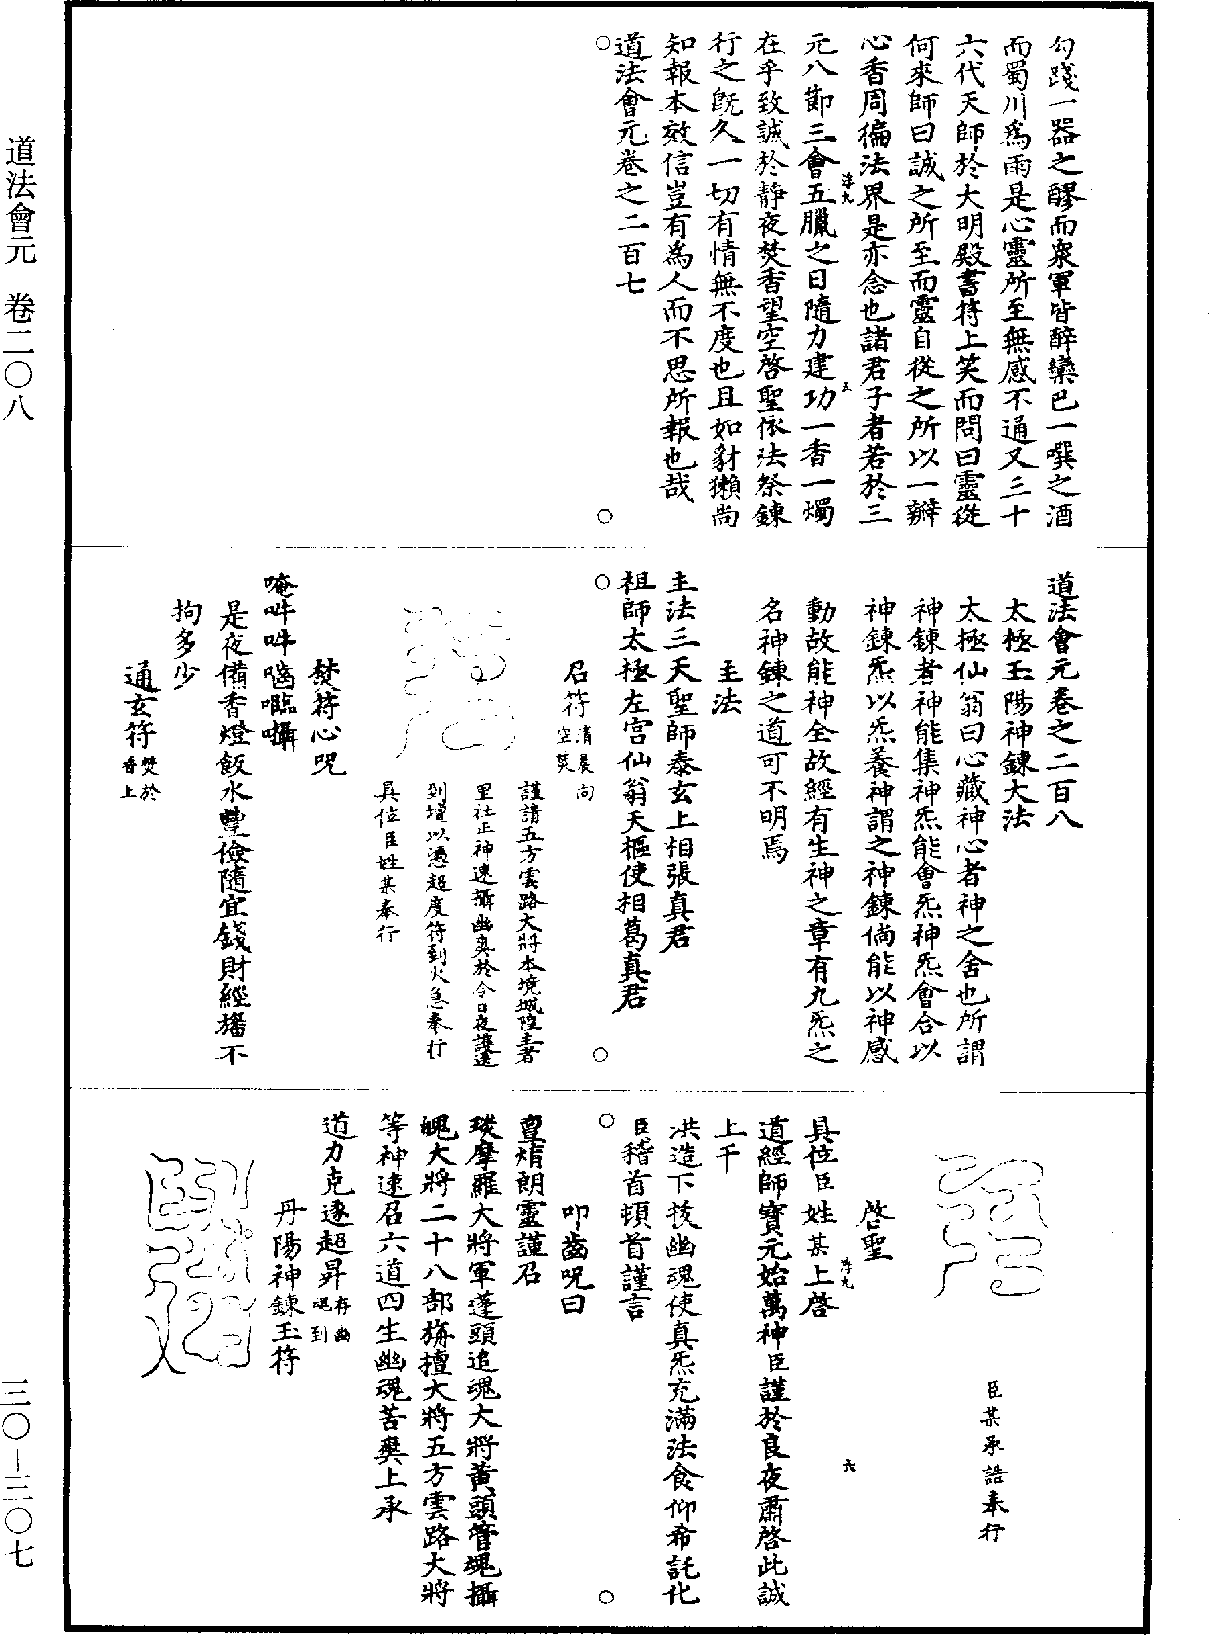 勾踐一器之醪而衆軍皆醉欒巴一噀之酒
而蜀川爲雨是心靈所至無感不通又三十
六代天師於大明殿書符上笑而問曰靈從
何來師曰誠之所至而靈自從之所以一瓣
心香周徧法界是亦念也諸君子者若於三
元八節三會五臘之日隨力建功一香一燭
在乎致誠於靜夜焚香望空啓聖依法祭鍊
行之旣久一切有情無不度也且如豺獺尚
知報本效信豈有爲人而不思所報也哉
道法會元卷之二百七
道法會元卷之二百八
太極玉陽神鍊大法
太極仙翁曰心藏神心者神之舍也所謂
神鍊者神能集神炁能會炁神炁會合以
神鍊炁以炁養神謂之神鍊倘能以神感
動故能神全故經有生神之章有九炁之
名神鍊之道可不明焉
主法
主法三天聖師泰玄上相張真君
祖師太極左宮仙翁天樞使相葛真君
召符 清晨向空焚
謹請五方雲路大將本境城隍主者
里社正神速攝幽爽於今日夜護送
到壇以憑超度符到火急奉行
具位臣姓某奉行
焚符心呪
唵吽吽嚙囓囁
是夜備香燈飯水豐儉隨宜錢財經旛不
拘多少
通玄符 焚於香上
臣某承誥奉行
啓聖
具位臣姓某上啓
道經師寶元始萬神臣謹於良夜肅啓此誠
上干
洪造下拔幽魂使真炁充滿法食仰希託化
臣稽首頓首謹言
叩齒呪曰
亶焴朗靈謹召
琰摩羅大將軍蓬頭追魂大將黃頭管魂攝
魄大將二十八部旃檀大將五方雲路大將
等神速召六道四生幽魂苦爽上承
道力克遂超昇 存幽魂到
丹陽神鍊玉符
道法會元　卷二〇八
三〇－三〇七